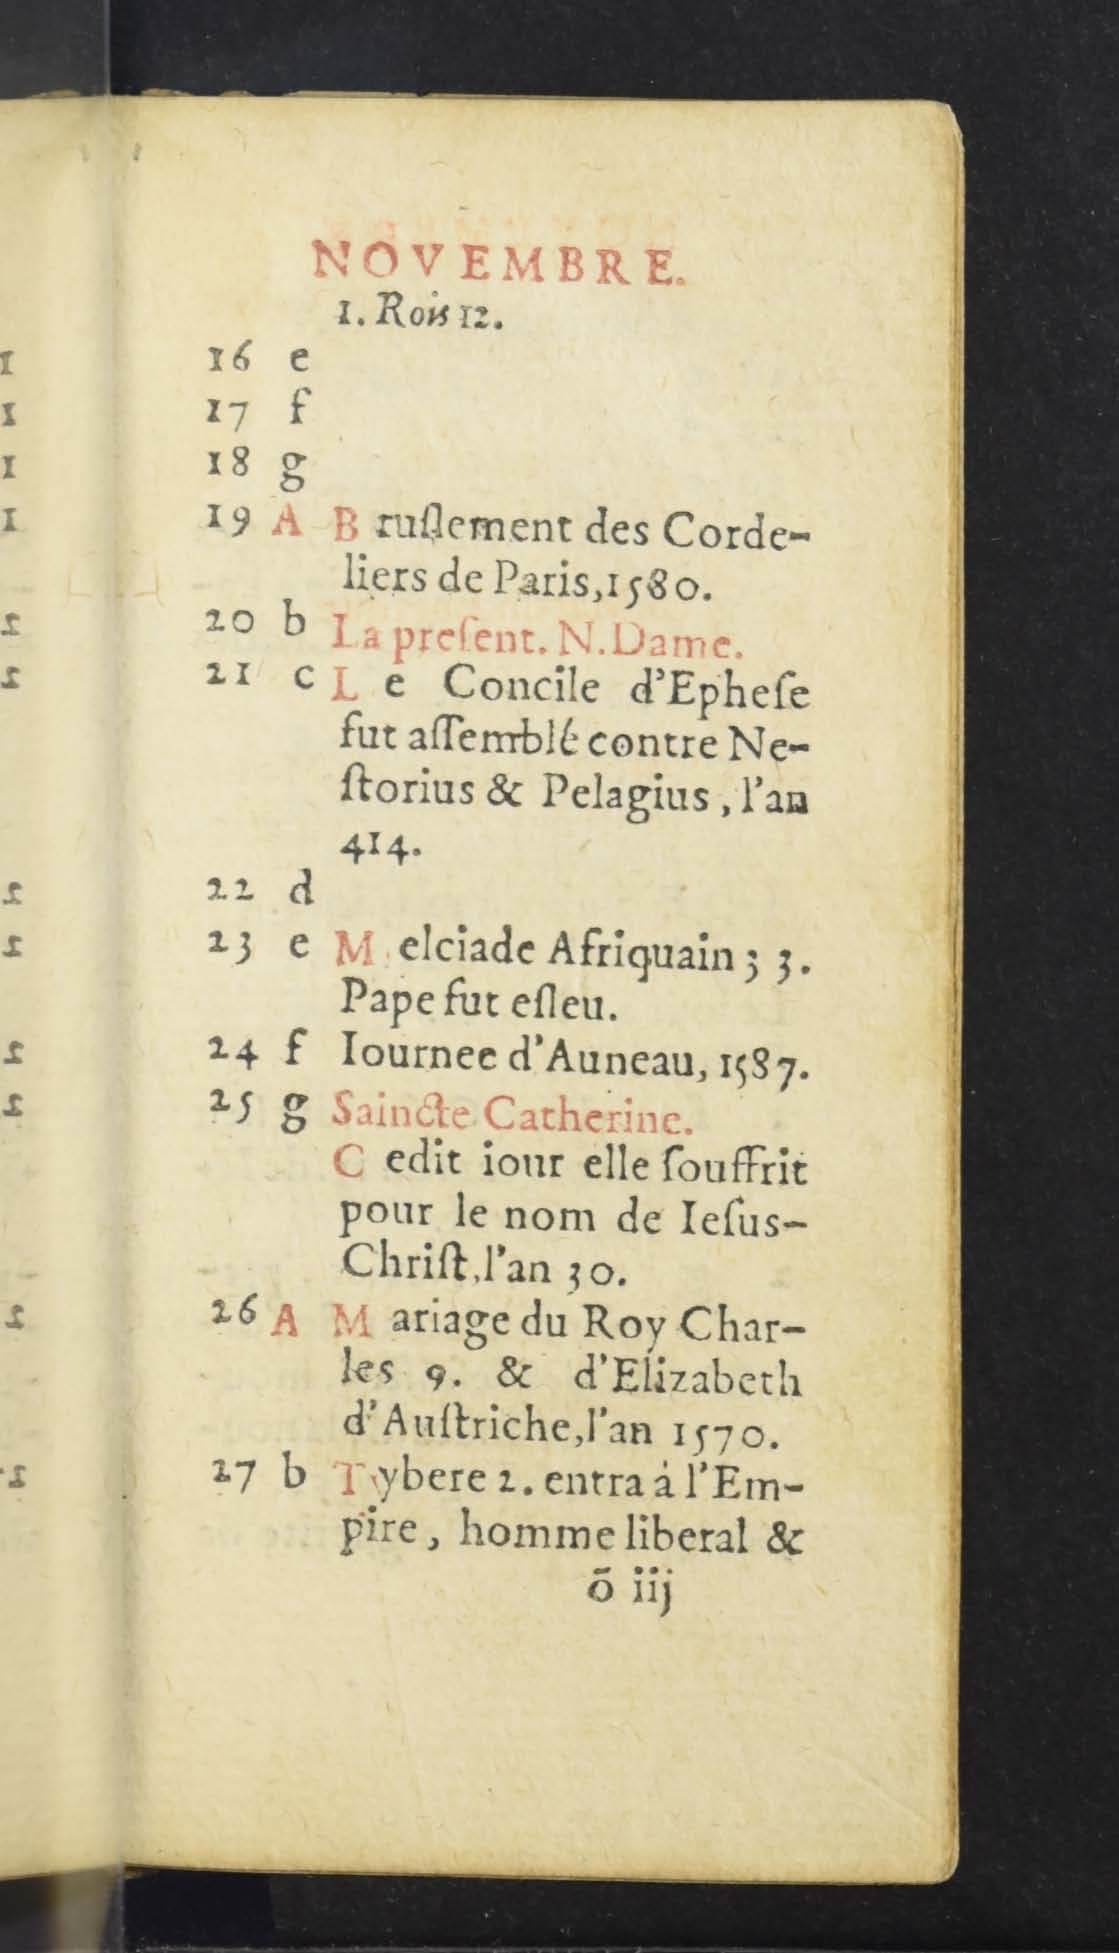 NOVEMBRE.
1. Rois 12.
16 e
17 f
18 g
19 A B ruſlement des Corde-
liers de Paris,1580.
20 b La preſent. N.Dame.
21 c L e Concile d'Epheſe
fut aſſemblé contre Ne-
ſtorius & Pelagius, l'an
414.
22 d
23 e M elciade Afriquain 33.
Pape fut eſleu.
24 f Iournee d'Auneau, 1587.
25 g Saincte Catherine.
C edit iour elle ſouffrit
pour le nom de Ieſus-
Chriſt,l'an 30.
26 A M ariage du Roy Char-
les 9. & d'Elizabeth
d'Auſtriche,l'an 1570.
27 b T ybere 2. entra à l'Em-
pire, homme liberal &
õ iij